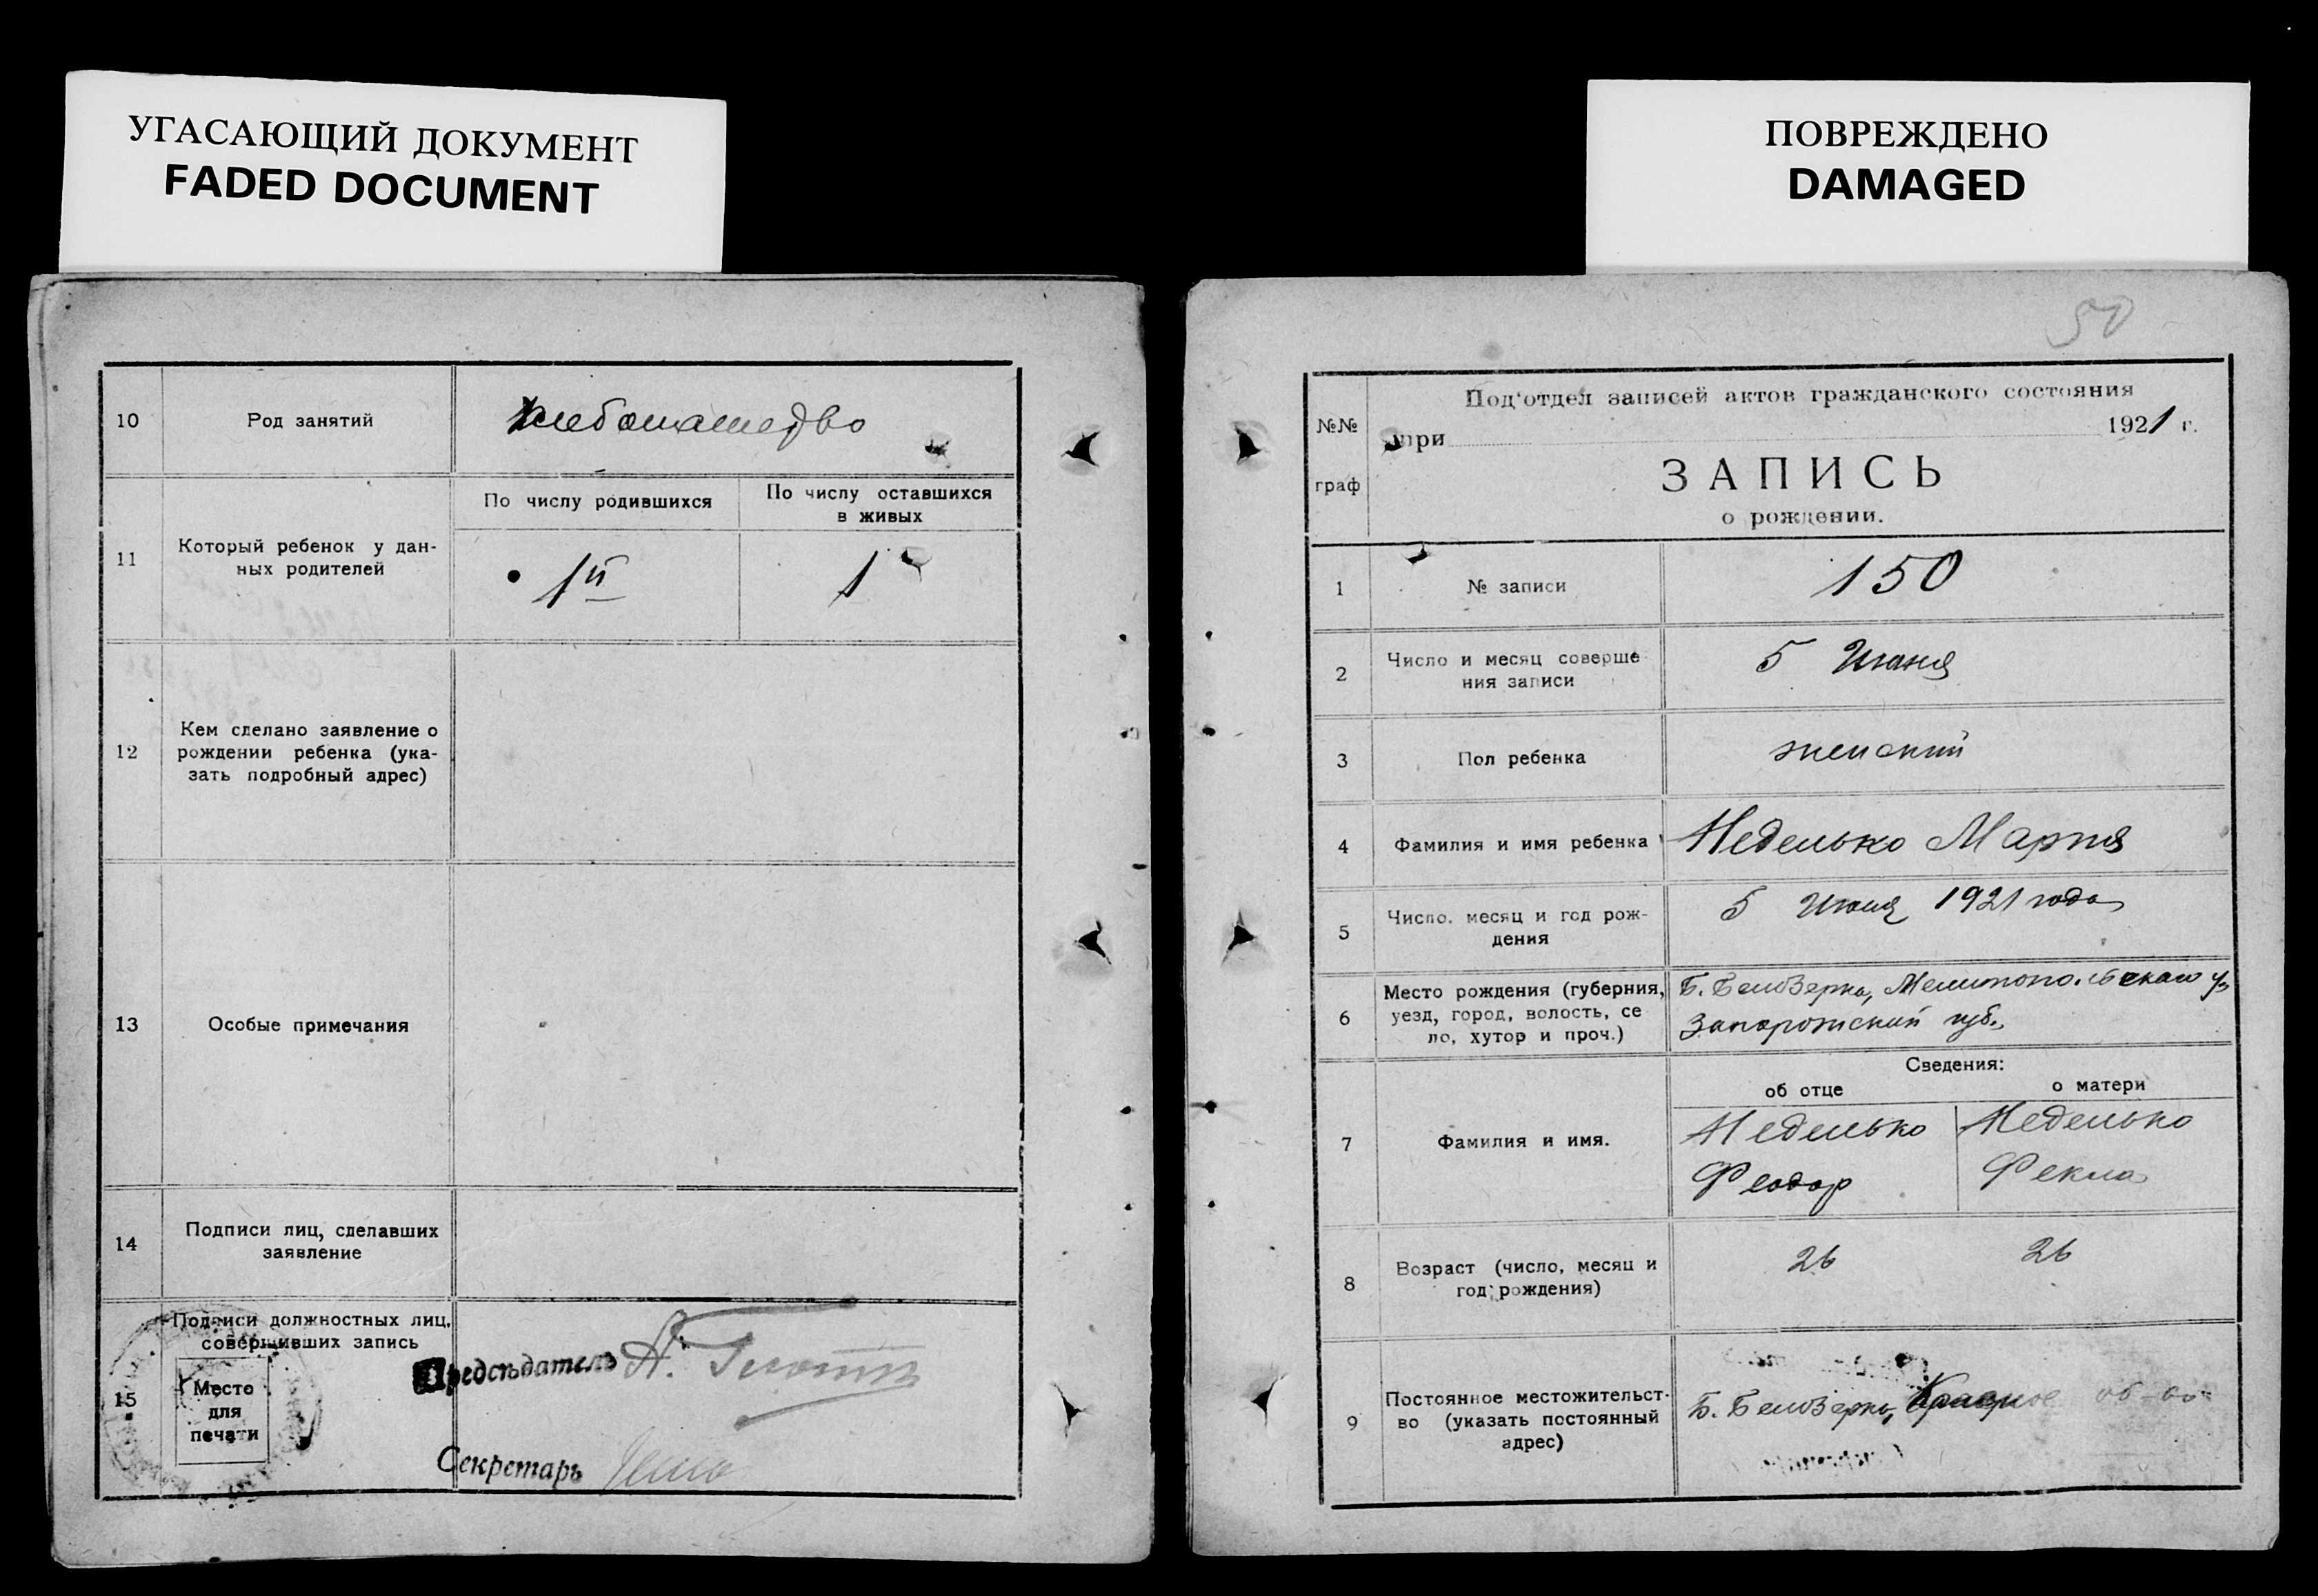 УГАСАЮЩИЙ ДОКУМЕНТ
FADED DOCUMENT
10
Род занятий
хлебопашество
11
Который ребенок у дан-
ных родителей
По числу родившихся
По числу оставшихся
в живых
1й
1
12
Кем сделано заявление о
рождении ребенка (ука-
зать подробный адрес)
13
Особые примечания
14
Подписи лиц, сделавших
заявление
15
Подписи должностных лиц,
совершивших запись
Место
для
печати
Председатель А.
Секретарь
ПОВРЕЖДЕНО
DAMAGED
50
№№
граф
Под'отдел записей актов гражданского состояния
при 1921 г.
ЗАПИСЬ
о рождении.
1
№ записи
150
2
Число и месяц соверше-
ния записи
5 Июня
3
Пол ребенка
женский
4
Фамилия и имя ребенка
Неделько Мария
5
Число. месяц и год рож-
дения
5 Июня 1921 года
6
Место рождения (губерния,
уезд, город, волость, се
ло, хутор и проч.)
Б. Белозерка, Мелитопольскаго у.
Запорожский губ.
Сведения:
об отце
о матери
7
Фамилия и имя.
Неделько
Феодор
Неделько
Фекла
8
Возраст (число, месяц и
год рождения)
26
26
9
Постоянное местожительст-
во (указать постоянный
адрес)
Б. Белозерка, Красное об-во